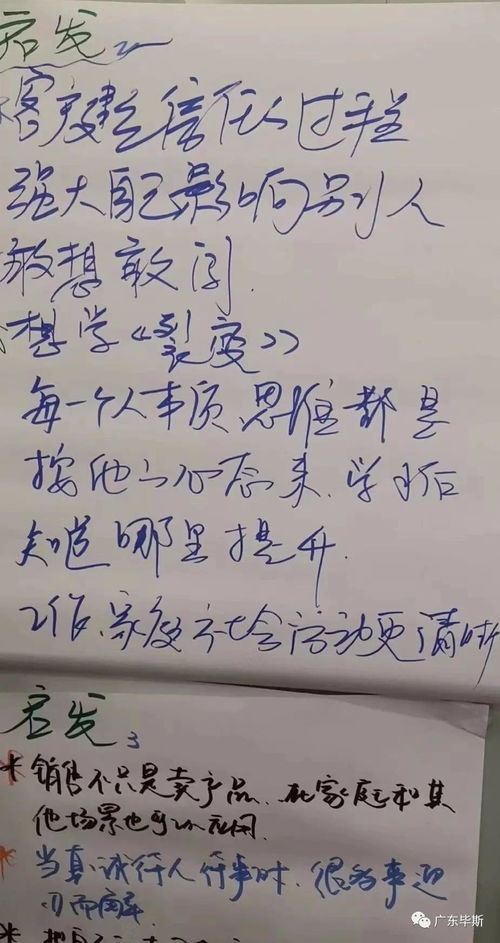 启发2
客户建立信任的过程
强大自己影响别人
敢想敢闯.
想学《裂变》
每一个人本质思维都是
按他的心态来.学习后
知道哪里提升.
工作、家庭、社会活动更清晰
启发3
*销售不只是卖产品、在家庭和其
他场景也可以应用.
当真诚待人行事时.很多事迎
刃而解
广东毕斯